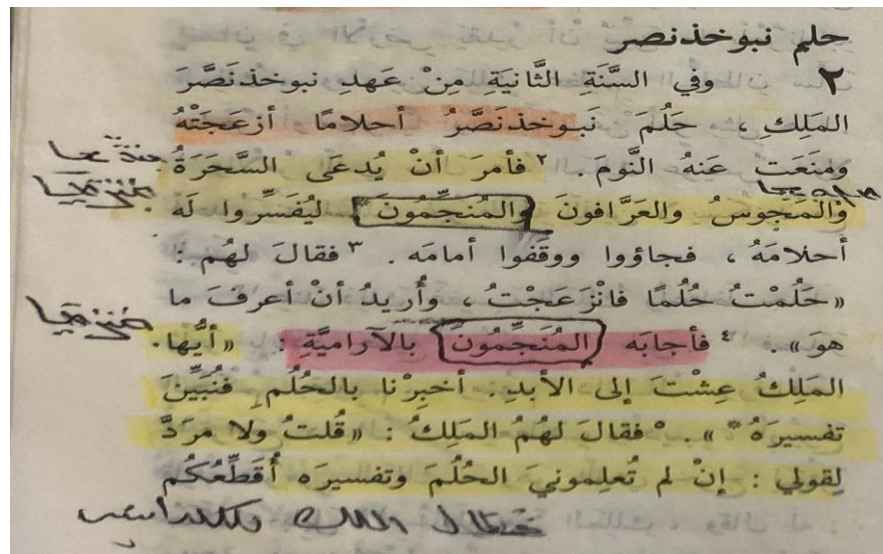 حلم نبوخذنصر
٢ وفي السَّنَةِ الثَّانيَةِ مِنْ عَهدِ نبوخذنَصَّرَ
المَلِكِ ، حَلُمَ نَبوخذنَصَّرُ أحلامًا أزعَجَتْهُ
ومنَعَت عَنهُ النَّومَ. ٢ فأمرَ أنْ يُدعَى السَّحَرَةُ
والمَجوسُ والعَرَّافونَ والمُنَجِّمُونَ* ليُفَسِّروا لَه
أحلامَهُ ، فجاؤوا ووقَفوا أمامَه. ٣ فقالَ لهُم :
«حَلُمْتُ حُلُمًا فانْزَعَجْتُ ، وأُريدُ أنْ أعرفَ ما
هوَ». ٤ فأجابَه المُنَجِّمُونَ بالآراميَّةِ : «أيُّها
المَلِكُ عِشْتَ إلى الأبدِ. أخبِرْنا بالحُلُمِ فنُبَيِّنَ
تفسيرَهُ*». ٥ فقالَ لهُمُ المَلِكُ : «قُلتُ ولا مرَدَّ
لِقولي : إنْ لم تُعلِمونيَ الحُلُمَ وتفسيرَه أُقَطِّعُكُم